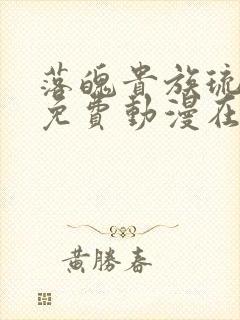 落魄貴族琉
免費動漫在
黃勝春